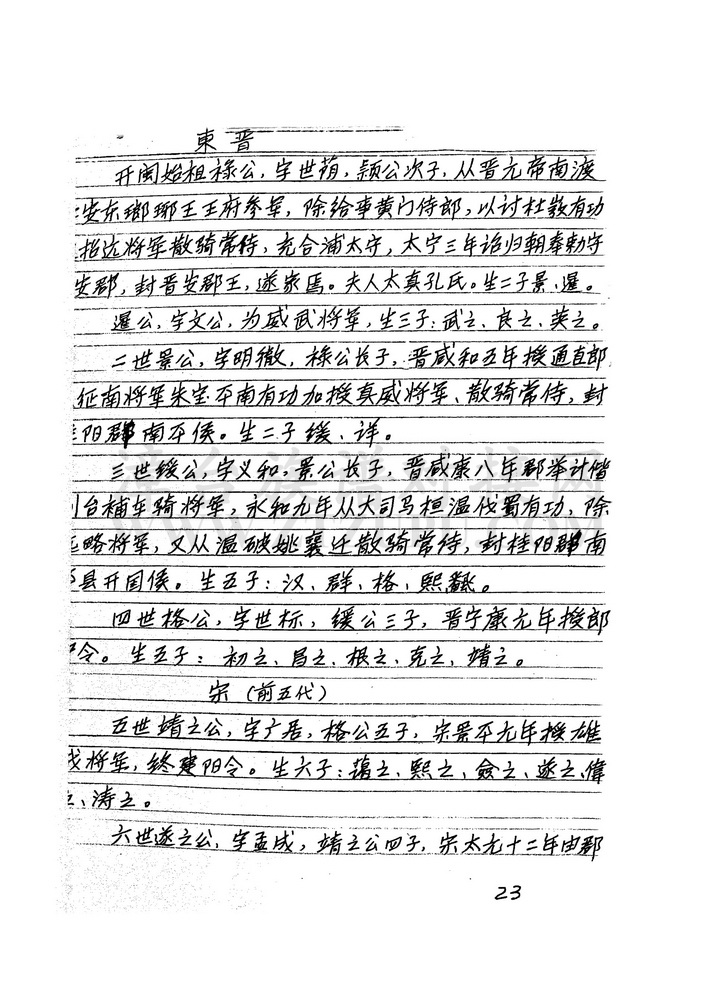 東晋
开闽始祖禄公，字世蓢，颖公次子，从晋元帝南渡
安东瑯琊王王府参军，除给事黄门侍郎，以讨杜弢有功
招远将军散骑常侍，充合浦太守，太宁三年诏归朝奉勅守
安郡，封晋安郡王，遂家焉。夫人太真孔氏。生二子景、暹。
暹公，字文公，为威武将军，生三子：武之、良之、英之。
二世景公，字明徹，禄公长子，晋咸和五年授通直郎
征南将军朱宝平南有功加授真威将军、散骑常侍，封
阳郡南平侯。生二子缓、详。
三世缓公，字义和，景公长子，晋咸康八年郡举计偕
台補车骑将军，永和元年从大司马桓温伐蜀有功，除
略将军，又从温破姚襄迁散骑常侍，封桂阳郡南
县开国侯。生五子：汉、群、格、熙、
四世格公，字世标，缓公三子，晋宁康元年授郎
令。生五子：初之、昌之、根之、克之、靖之。
宋（前五代）
五世靖之公，字广居，格公五子，宋景平元年授雄
将军，终建阳令。生六子：蔼之、熙之、僉之、遂之、偉
之、涛之。
六世遂之公，字孟成，靖之公四子，宋太元十二年由郡
23